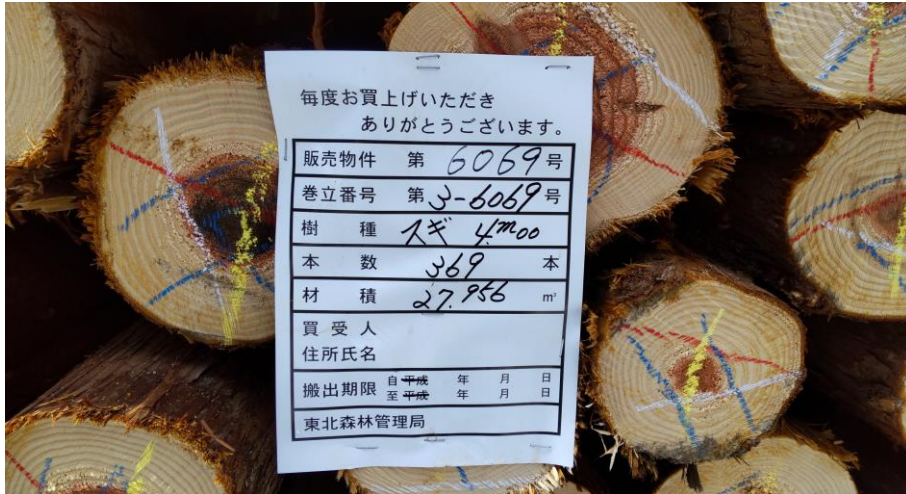 毎度お買上げいただき
ありがとうございます。
販売物件 第 6069 号
巻立番号 第 3-6069 号
樹 種 スギ 4.m00
本 数 369 本
材 積 27.956 m³
買受人
住所氏名
搬出期限 自 平成 年 月 日
至 平成 年 月 日
東北森林管理局